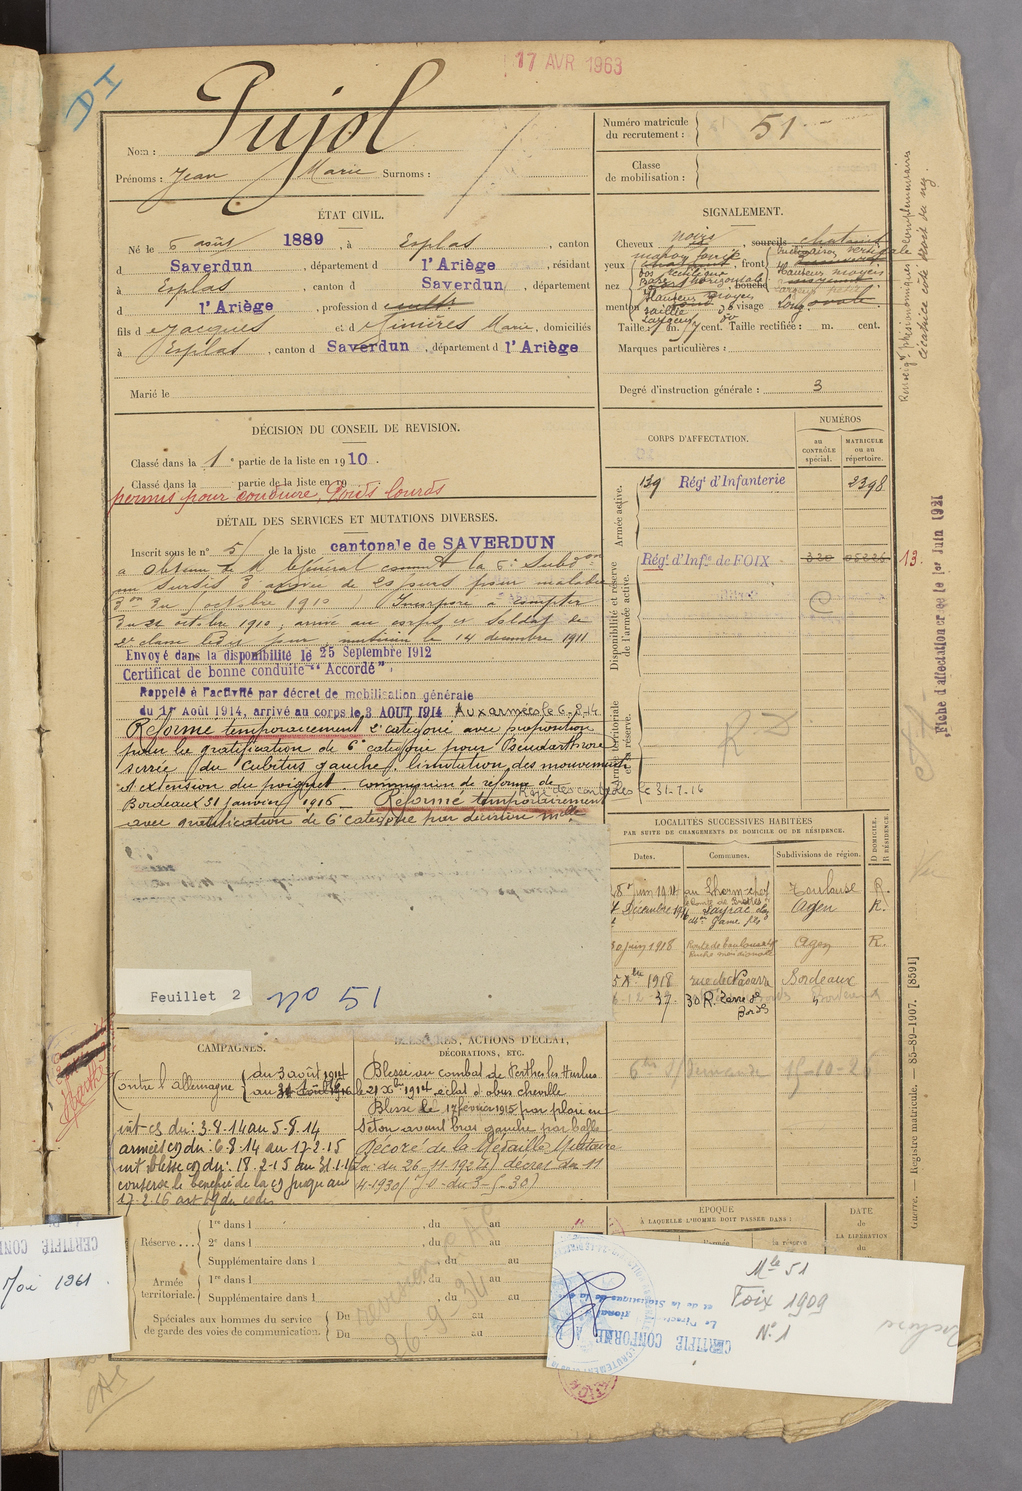 17 AVR 1963
DI
Nom : Pujol
Prénoms : Jean Marie Surnoms :
Numéro matricule du recrutement : 51
Classe de mobilisation :
ÉTAT CIVIL.
Né le 6 août 1889, à Esplas, canton
d Saverdun, département d l'Ariège, résidant
à Esplas, canton d Saverdun, département
d l'Ariège, profession d cultr.
fils d Jacques et d Marie, domiciliés
à Esplas, canton d Saverdun, département d l'Ariège
Marié le
SIGNALEMENT.
Cheveux noirs, sourcils chatains
yeux marron foncé, front verticale
hauteur moyen
nez dos rectiligne, bouche
base horizontale
hauteur moyen
menton, visage long ovale
saillie do
largeur do
Taille : 1 m. cent. Taille rectifiée : m. cent.
Marques particulières :
Degré d'instruction générale : 3
Renseigts physionomiques complémentaires
cicatrice côté droit du nez.
DÉCISION DU CONSEIL DE REVISION.
Classé dans la 1e partie de la liste en 1910.
Classé dans la partie de la liste en 19
permis pour conduire, Poids lourds
DÉTAIL DES SERVICES ET MUTATIONS DIVERSES.
Inscrit sous le n° 51 de la liste cantonale de SAVERDUN
a obtenu de M. le Général commt la 6e Subdon
un sursis d'arrivée de 20 jours pour maladie
don du octobre 1910 Incorporé à compter
du 22 octobre 1910, arrivé au corps et soldat de
2e classe ledit jour, musicien le 14 décembre 1911
Envoyé dans la disponibilité le 25 Septembre 1912
Certificat de bonne conduite "Accordé".
Rappelé à l'activité par décret de mobilisation générale
du 1er Août 1914, arrivé au corps le 3 AOUT 1914 Aux armées le 6-8-14
Réformé temporairement 2e catégorie avec proposition
pour la gratification de 6e catégorie pour Pseudarthrose
serrée du cubitus gauche, limitation des mouvements
d'extension du poignet. commission de réforme de
Bordeaux 31 janvier 1916 - Réformé temporairement
Rayé des contrôles le 31-1-16
avec gratification de 6e catégorie par décision mlle
Feuillet 2
N° 51
CORPS D'AFFECTATION.
NUMÉROS
au CONTRÔLE spécial.
MATRICULE ou au répertoire.
Armée active.
139 Régt d'Infanterie 2398
Disponibilité et réserve de l'armée active.
Régt d'Infie de FOIX 320 05226 13.
Armée territoriale et sa réserve.
R D
Fiche d'affectation créée le 1er Juin 1921
LOCALITÉS SUCCESSIVES HABITÉES
PAR SUITE DE CHANGEMENTS DE DOMICILE OU DE RÉSIDENCE.
Dates. Communes. Subdivisions de région. D DOMICILE. R RÉSIDENCE.
8 juin 1914 au Toulouse R.
Décembre 19 Layrac Agen R.
30 juin 1918 Route de Toulouse Agen R.
5 Xbre 1918 rue de Navarre Bordeaux
6-12-37. 30 R.
15-10-26
CAMPAGNES.
Contre l'allemagne { au 3 août 1914
int. cs du : 3.8.14 au 5.8.14
armées cs du : 6.8.14 au 17.2.15
int. blessé cs du : 18.2.15 au 31.1.16
conserve le bénéfice de la cs jusqu'au
17.2.16
BLESSURES, ACTIONS D'ÉCLAT, DÉCORATIONS, ETC.
Blessé au combat de Perthes les Hurlus
le 21 Xbre 1914, éclat d'obus cheville
Blessé le 17 février 1915 par plaie en
séton avant bras gauche par balle
Décoré de la Médaille Militaire
Loi du 26-11-1924) décret du 11
4-1930 (J.O. du 3-5-30)
Réserve ... 1re dans l , du au
2e dans l , du au
Supplémentaire dans l , du au
Armée territoriale. 1re dans l , du au
Supplémentaire dans l , du au
Spéciales aux hommes du service de garde des voies de communication. Du au
Du au
revision
26-9-34
ÉPOQUE
À LAQUELLE L'HOMME DOIT PASSER DANS :
DATE de LA LIBÉRATION du
Guerre. — Registre matricule. — 85-89-1907. [8591]
Mle 51
Foix 1909
N° 1
CERTIFIÉ CONFORME
Mai 1961
CERTIFIÉ CONF